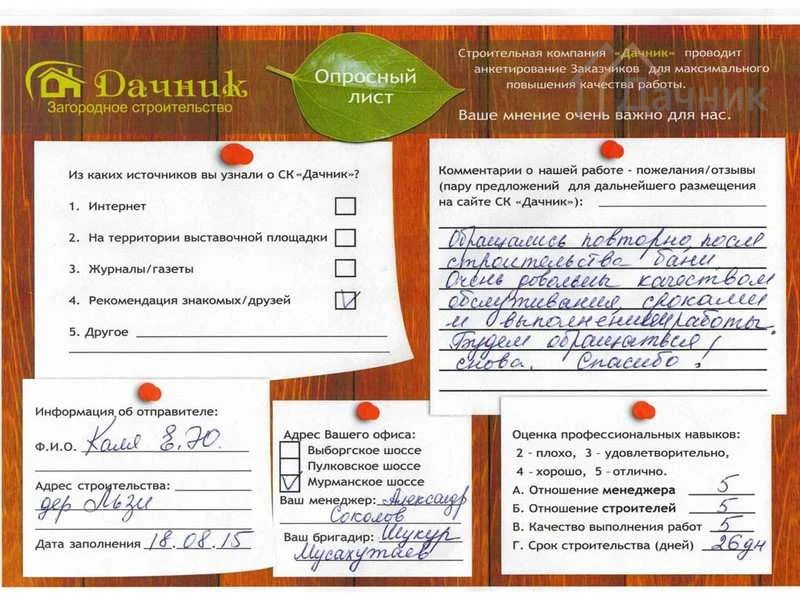 Дачник
Загородное строительство
Опросный
лист
Строительная компания «Дачник» проводит
анкетирование Заказчиков для максимального
повышения качества работы.
Ваше мнение очень важно для нас.
Дачник
Из каких источников вы узнали о СК «Дачник»?
1. Интернет
2. На территории выставочной площадки
3. Журналы/газеты
4. Рекомендация знакомых/друзей
5. Другое
Комментарии о нашей работе - пожелания/отзывы
(пару предложений для дальнейшего размещения
на сайте СК «Дачник»):
Обращались повторно после
строительства бани
Очень довольны качеством
обслуживания, сроками
и выполнением работы.
Будем обращаться
снова. Спасибо!
Информация об отправителе:
Ф.И.О. Каля Е.Ю.
Адрес строительства:
дер Льзи
Дата заполнения 18.08.15
Адрес Вашего офиса:
Выборгское шоссе
Пулковское шоссе
Мурманское шоссе
Ваш менеджер: Александр
Соколов
Ваш бригадир: Шукур
Мусакутаев
Оценка профессиональных навыков:
2 - плохо, 3 - удовлетворительно,
4 - хорошо, 5 - отлично.
А. Отношение менеджера 5
Б. Отношение строителей 5
В. Качество выполнения работ 5
Г. Срок строительства (дней) 26 дн